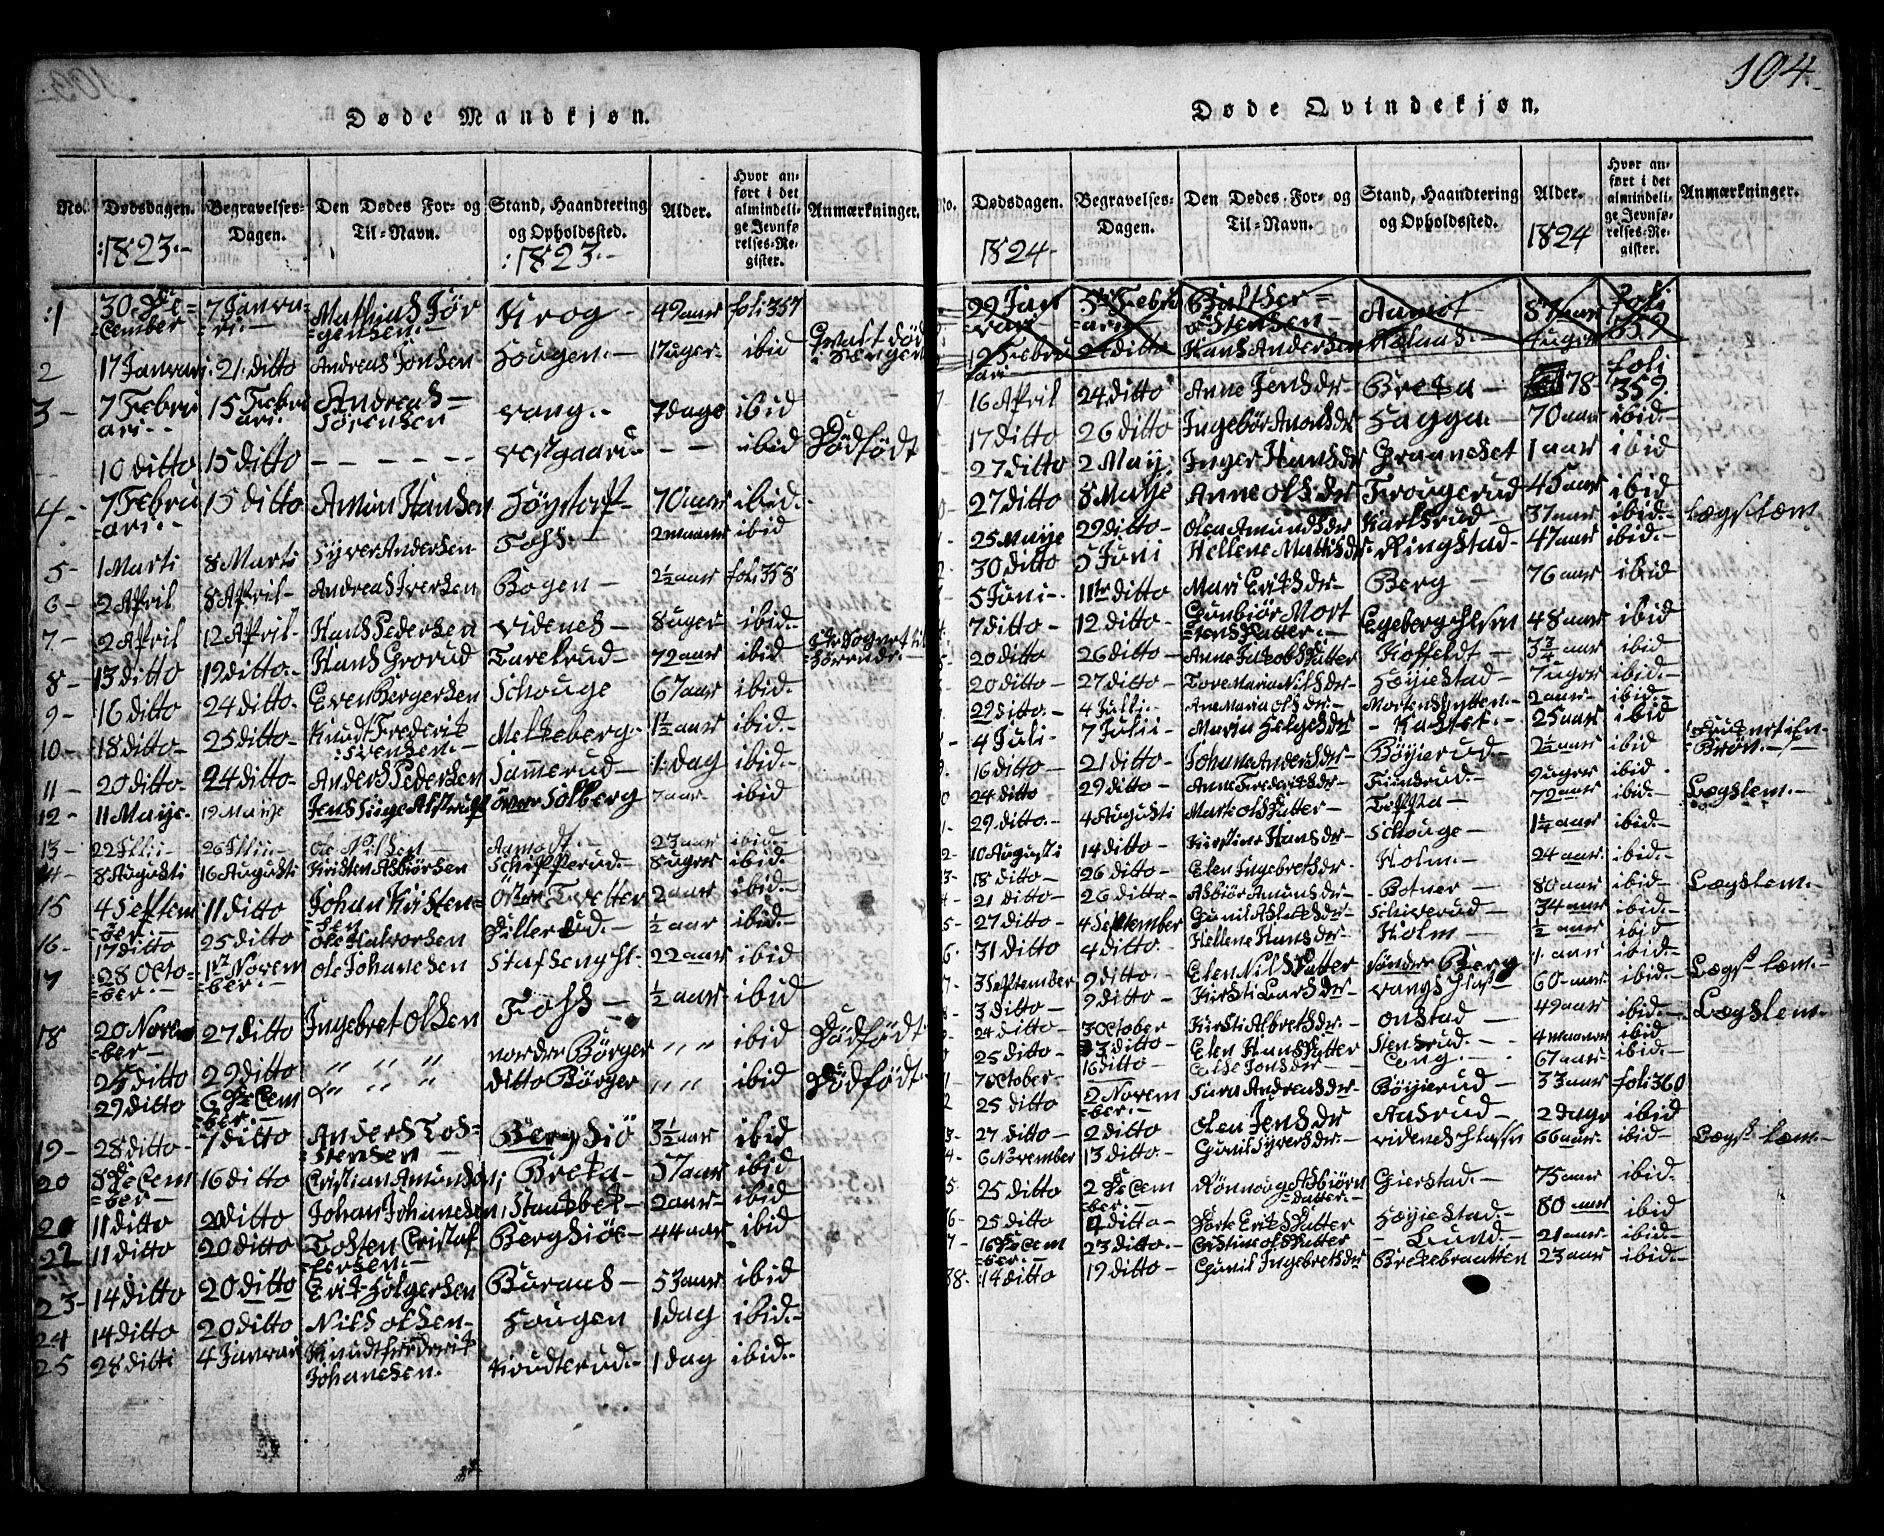 Døde Mandkjøn.
No. Dødsdagen. Begravelses-Dagen. Den Dødes For- og Til-Navn. Stand, Haandtering og Opholdssted. Alder. Hvor anført i det almindelige Jevnførelses-Register. Anmærkninger.
:1823.- :1823.-
:1 30 De=cember 7 Janvari.- Mathias Jørgensen.- Krog- 49 aar foli 357
2 17 Janvari 21 ditto Andreas Jonsen Hougen.- 17 uger- ibid
3- 7 Februari.- 15 Februari.- Andreas Sørensen Vang.- 7 dage ibid
- 10 ditto 15 ditto - - - - - Vestgaard.- - - ibid Dödfödt
4- 7 Februari.- 15 ditto Hansen 70 aar ibid.
Foss.- 2 maaner ibid
5- 1 Marti 8 Marti Syver Andersen
6- 2 April 8 April- Andreas Iversen Bogen- 2½ aar foli 358
7- 2 April 12 April- Hans Pedersen Videnes- 8 uger- ibid.
8- 13 ditto 19 ditto.- Hans Grorud Tarelrud- 72 aar ibid
9- 16 ditto 24 ditto- Even Børgersen Schouge 67 aar ibid.
10- 18 ditto- 25 ditto- Knudt Frederik Svensen.- Melkeberg.- 1½ aar ibid
11- 20 ditto- 24 ditto- Anders Pedersen Sammerud- 1 dag ibid.-
12- 11 Maije- 19 Maije Jens over Solberg 7 aar ibid
13- 22 Julii- 26 Julii- Ole Nilsen- Aamodt.- 23 aar ibid.-
14- 8 Augusti 16 Augusti Kristen Asbiörsen Schipperud- 8 uger ibid
15 4 September.- 11 ditto Johan Kristensen Öster Tvetter 2 aar ibid.-
16- 17 ditto 25 ditto Ole Halvorsen Pillerud.- ½ aar ibid.-
17 28 October.- 1 November.- Ole Johanesen 22 aar ibid
18 20 November- 27 ditto Ingebret Olsen Foss- ½ aar- ibid
25 ditto 29 ditto " " " norder Börger " " ibid Dödfödt.
29 ditto 6 December.- " " " ditto Börger " " ibid Dödfödt.
19- 28 ditto- 7 ditto Anders Tostensen- Bergsiö 3½ aar ibid
20 8 December- 16 ditto Cristian Breka- 57 aar ibid
20 11 ditto 20 ditto Johan Johanesen 2 aar- ibid
22 11 ditto 20 ditto Tosten Cristofersen.- Bergsiöe- 44 aar ibid
23- 14 ditto 20 ditto Erik Holgersen Buraas- 53 aar ibid
24 14 ditto 20 ditto Nils Olsen- Hougen 1 dag ibid.-
25 28 ditti 4 Janvari Knudt Frederik Johanesen. Knudterud.- 1 dag ibid.-
104.
Døde Qvindekjøn.
No. Dødsdagen. Begravelses-Dagen. Den Dødes For- og Til-Navn. Stand, Haandtering og Opholdssted. Alder. Hvor anført i det almindelige Jevnførelses-Register. Anmærkninger.
1824- 1824
29 Janvari 5 Februari Stensen- Aamot 87 aar foli 359
12 Februari 21 ditto Hans Andersen
16 April 24 ditto Anne Jensder- Breka- 78 foli 359.
17 ditto 26 ditto Hagga- 70 aar ibid.-
27 ditto 2 Maij Inger Hansder Graaneset 1 aar ibid
27 ditto 8 Maije Anne Olsder Frougerud 45 aar ibid
25 Maije 29 ditto- Olea Amundsder Karlsrud- 37 aar ibid.- Lægslem
30 ditto 5 Juni Hellene Mattisder- Ringstad- 47 aar ibid.-
5 Juni- 11 ditto Mari Eriksder- Berg- 76 aar ibid
7 ditto- 12 ditto Gunbiör Mortensdatter.- 48 aar ibid
20 ditto 26 ditto- Anne Jacobsdatter Hoffeldt- 3¾ aar ibid
20 ditto- 27 ditto- Tore Maria Nilsder- Höyiestad- 7 uger ibid.-
22 ditto- 4 Julii- Ane Maria Olsder- 2 aar- ibid.-
4 Juli- 7 Julii- Maria Helgesder 25 aar ibid
16 ditto- 21 ditto- Johane Andersder- Böyierud- 2½ aar ibid
24 ditto 29 ditto- Ane Frederiksder- 9 uger ibid.
29 ditto.- 4 Augusti Marte Olsdatter- Toppa- 72 aar ibid.- Lægslem.-
10 Augusti 14 ditto- Kirstine Hansder- Schouge- 1¼ aar ibid.-
18 ditto- 26 ditto- Elen Ingebretsder- Holm- 24 aar ibid.-
21 ditto- 26 ditto- Asbiör Amundsder- Botner- 80 aar ibid- Lægslem.-
27 ditto- 4 September Gunil Schiverud- 34 aar ibid.-
31 ditto 4 ditto- Hellene Hansder- Holm- ½ aar ibid
3 September 9 ditto- Elen Nilsdatter Sönder Berg 1 aar ibid.-
3 ditto- 9 ditto- Kirsti Larsder- 60 aar ibid- Lægslem.-
24 ditto- 3 October Kirsti Albretsder- Onstad- 49 aar ibid.- Lægslem.-
25 ditto- 3 ditto- Elen Hansdatter Stensrud- 4 maaner ibid
7 October- 16 ditto- Eng.- 67 aar ibid.-
25 ditto 2 November.- Sara Andreasder- Böyierud- 33 aar foli 360
27 ditto- 2 ditto- Olea Jensder Aasrud- 2 dage ibid
6 November 13 ditto- Gunil Syversder- 66 aar ibid- Lægslem.-
25 ditto 2 December.- Rönnoug Asbiörnsdatter.- Gierstad.- 75 aar ibid.
25 ditto ditto- Dorte Eriksdatter Höyiestad.- 80 aar ibid
16 December.- 23 ditto.- Cristine Olsdatter Lund- 21 aar- ibid.-
:14 ditto 19 ditto- Gunil Ingebretsder Brekebraatten 23 aar ibid.-